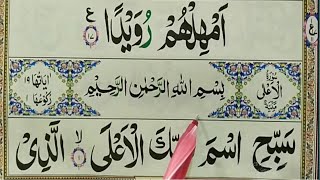 اَمْهِلْهُمْ رُوَيْدًا ع ١٧
سُوْرَةُ الْاَعْلٰى
بِسْمِ اللّٰهِ الرَّحْمٰنِ الرَّحِيْمِ
اٰيَاتُهَا ١٩
رُكُوْعُهَا ١
سَبِّحِ اسْمَ رَبِّكَ الْاَعْلَى ۙ ١ الَّذِىْ